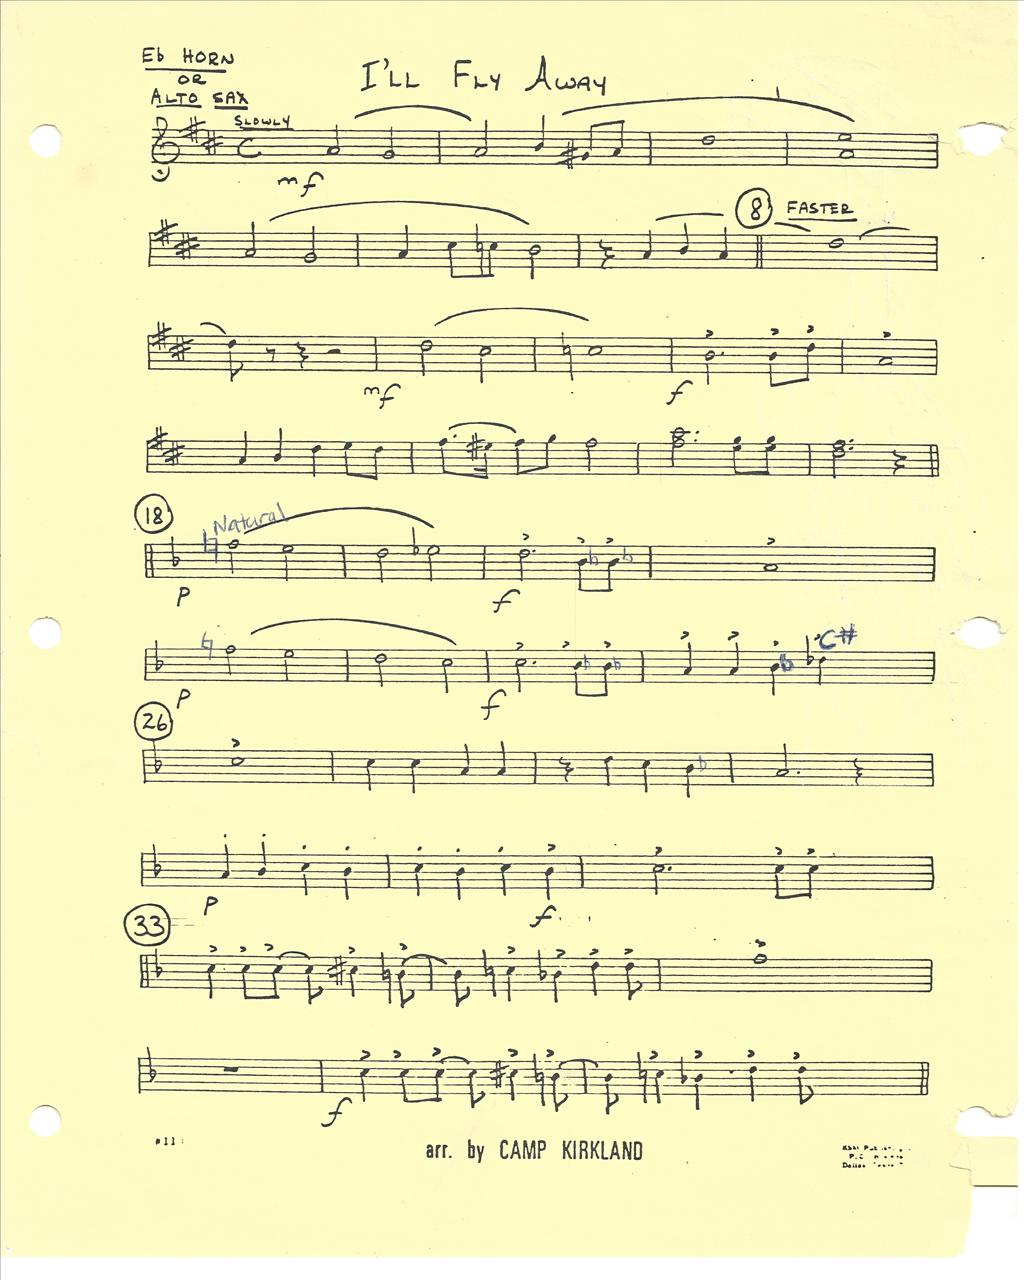 Eb HORN
OR
ALTO SAX
I'LL FLY AWAY
SLOWLY
mf
8 FASTER
mf f
18
Natural
p f
b b
C#
b b b
p f
26
b
p f
33
f
#11
arr. by CAMP KIRKLAND